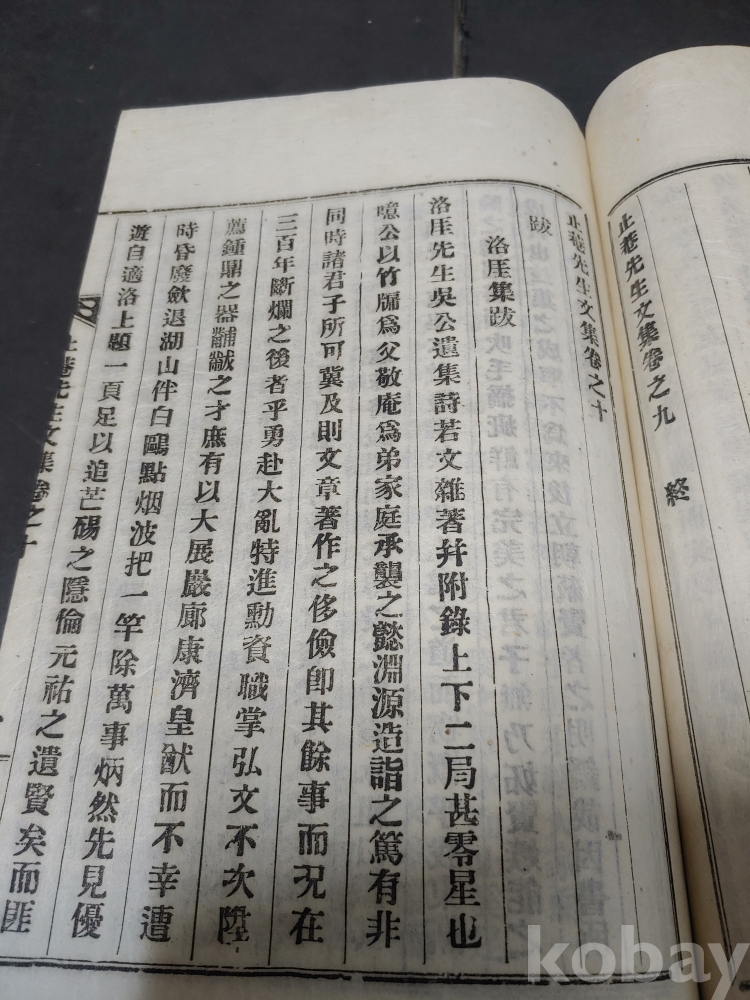 止菴先生文集卷之九 終
止菴先生文集卷之十
跋
洛厓集跋
洛厓先生吳公遺集詩若文雜著幷附錄上下二局甚零星也
噫公以竹牖爲父敬庵爲弟家庭承襲之懿淵源造詣之篤有非
同時諸君子所可冀及則文章著作之侈儉卽其餘事而况在
三百年斷爛之後者乎勇赴大亂特進勳資職掌弘文不次陞
薦鍾鼎之器黼黻之才庶有以大展巖廊康濟皇猷而不幸遭
時昏廢斂退湖山伴白鷗點烟波把一竿除萬事炳然先見優
遊自適洛上題一頁足以追芒碭之隱倫元祐之遺賢矣而匪
止菴先生文集卷之十
kobay